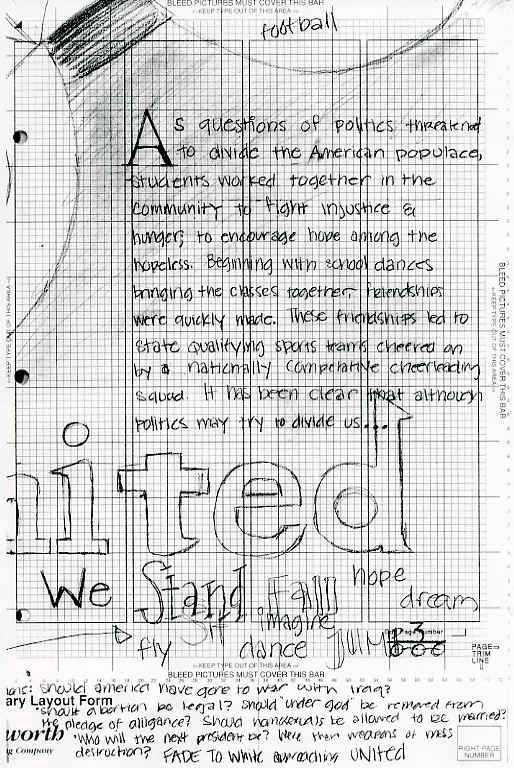 BLEED PICTURES MUST COVER THIS BAR
KEEP TYPE OUT OF THIS AREA
football
As questions of politics threatened
to divide the American populace,
students worked together in the
community to fight injustice &
hunger, to encourage hope among the
hopeless. Beginning with school dances
bringing the classes together, friendships
were quickly made. These friendships led to
state qualifying sports teams cheered on
by a nationally competative cheerleading
squad. It has been clear that although
politics may try to divide us...
nited
We Stand Fall hope
dream
Sit imagine
fly dance JUMP
Page Number 3
KEEP TYPE OUT OF THIS AREA
BLEED PICTURES MUST COVER THIS BAR
PAGE TRIM LINE
KEEP TYPE OUT OF THIS AREA
KEEP TYPE OUT OF THIS AREA
BLEED PICTURES MUST COVER THIS BAR
ons: Should america have gone to war with Iraq?
ary Layout Form
Should abortion be legal? Should "under god" be removed from
the pledge of alligance? Should homosexuals be allowed to be married?
worth
Who will the next president be? Were their weapons of mass
g Company
destruction? FADE TO White approaching UNITED
RIGHT PAGE
NUMBER